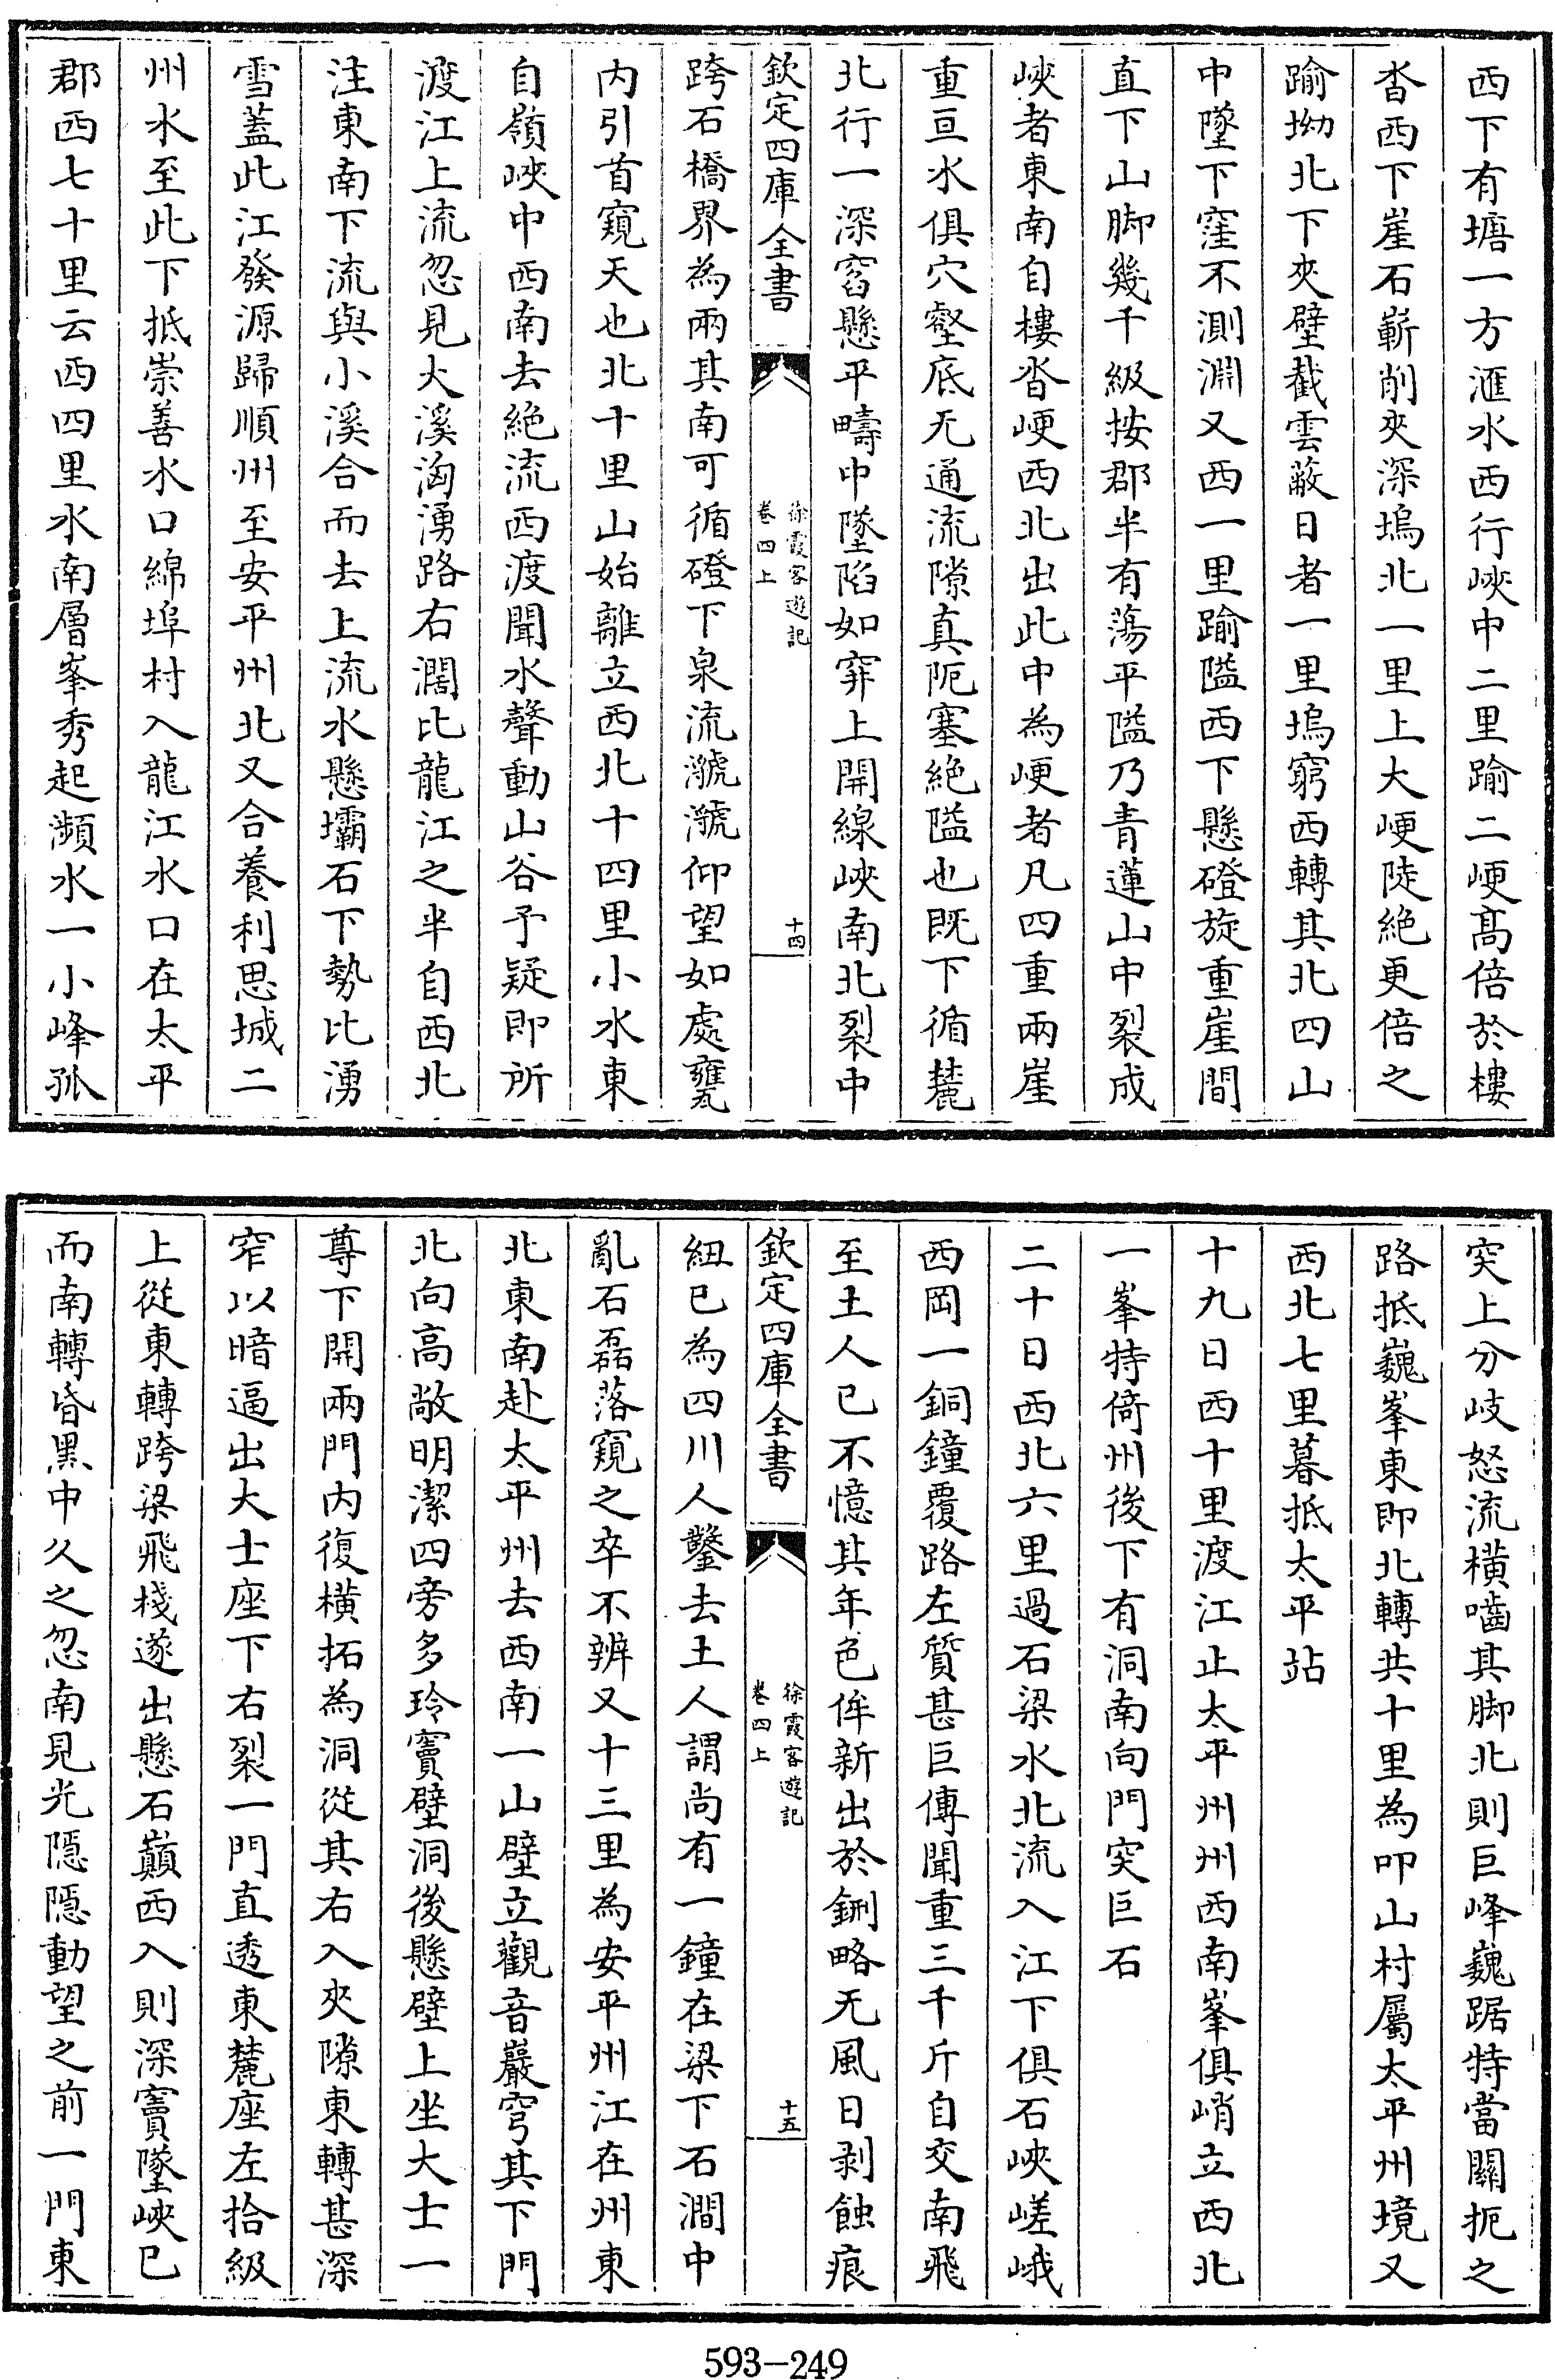 西下有塘一方滙水西行峽中二里踰二峺髙倍於樓
沓西下崖石嶄削夾深塢北一里上大峺陡絶更倍之
踰坳北下夾壁截雲蔽日者一里塢窮西轉其北四山
中墜下窪不測淵又西一里踰隘西下懸磴旋重崖間
直下山脚幾千級按郡半有蕩平隘乃青蓮山中裂成
峽者東南自樓沓峺西北出此中為峺者凡四重兩崖
重亘水俱穴壑底无通流隙真阨塞絶隘也既下循麓
北行一深窞懸平疇中墜陷如穽上開線峽南北裂中
欽定四庫全書
徐霞客遊記
卷四上
十四
跨石橋界為兩其南可循磴下泉流㶁㶁仰望如處甕
内引首窺天也北十里山始離立西北十四里小水東
自嶺峽中西南去絶流西渡聞水聲動山谷予疑即所
渡江上流忽見大溪洶湧路右濶比龍江之半自西北
注東南下流與小溪合而去上流水懸壩石下勢比湧
雪蓋此江發源歸順州至安平州北又合養利思城二
州水至此下抵崇善水口綿埠村入龍江水口在太平
郡西七十里云西四里水南層峯秀起瀕水一小峰孤
突上分岐怒流橫嚙其脚北則巨峰巍踞特當關扼之
路抵巍峯東即北轉共十里為叩山村屬太平州境又
西北七里暮抵太平站
十九日西十里渡江止太平州州西南峯俱峭立西北
一峯特倚州後下有洞南向門突巨石
二十日西北六里過石梁水北流入江下俱石峽嵯峨
西岡一銅鐘覆路左質甚巨傳聞重三千斤自交南飛
至土人已不憶其年色侔新出於鉶略无風日剥蝕痕
欽定四庫全書
徐霞客遊記
卷四上
十五
紐已為四川人鑿去土人謂尚有一鐘在梁下石澗中
亂石磊落窺之卒不辨又十三里為安平州江在州東
北東南赴太平州去西南一山壁立觀音巖穹其下門
北向高敞明潔四旁多玲竇壁洞後懸壁上坐大士一
尊下開兩門内復横拓為洞從其右入夾隙東轉甚深
窄以暗逼出大士座下右裂一門直透東麓座左拾級
上從東轉跨梁飛棧遂出懸石巔西入則深竇墜峽已
而南轉昏黑中久之忽南見光隱隱動望之前一門東
593-249